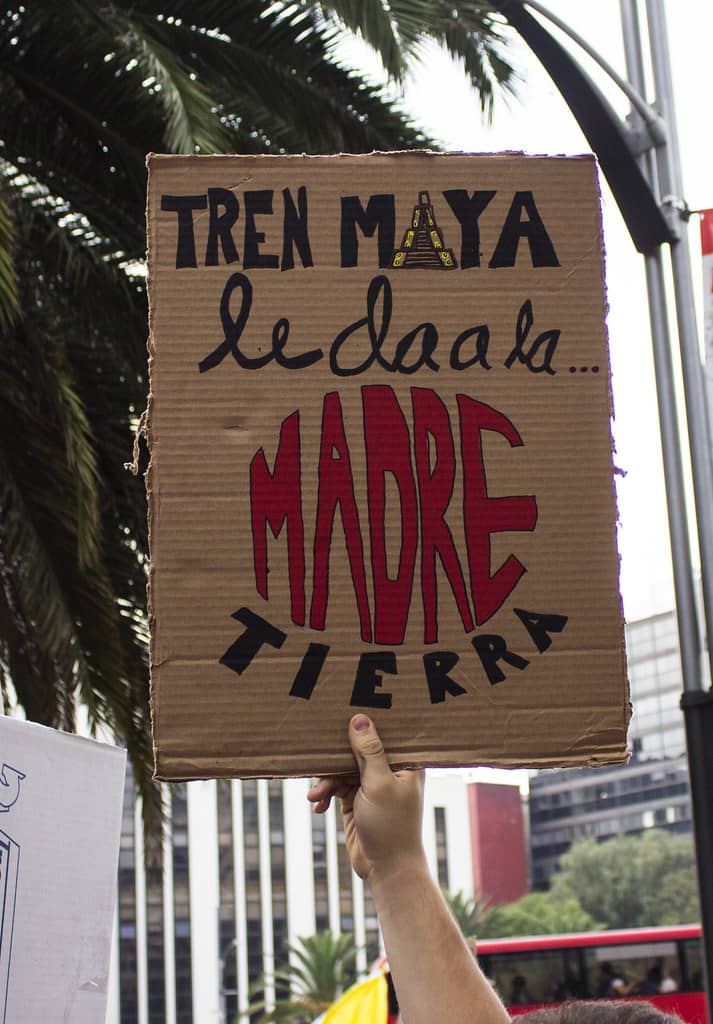 TREN MAYA
le da a la...
MADRE
TIERRA